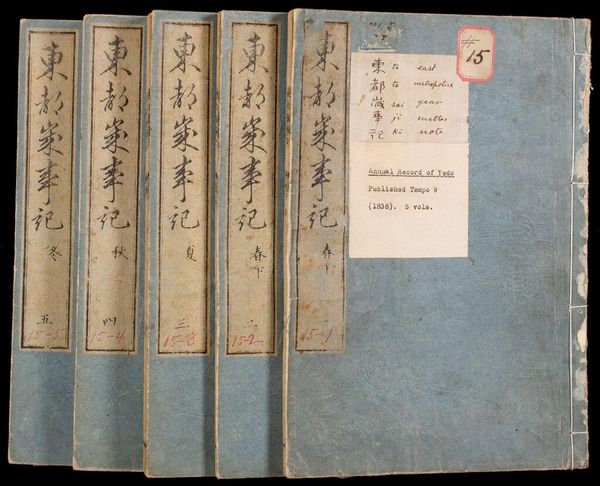 東都歲事記
冬
五
15-5
東都歲事記
秋
四
15-4
東都歲事記
夏
三
15-3
東都歲事記
春下
二
15-2
東都歲事記
春上
15-1
# 15
東 to east
都 to metropolire
歲 sai year
事 ji matter
記 ki note
Annual Record of Yedo
Published Tempo 9
(1838). 5 vols.